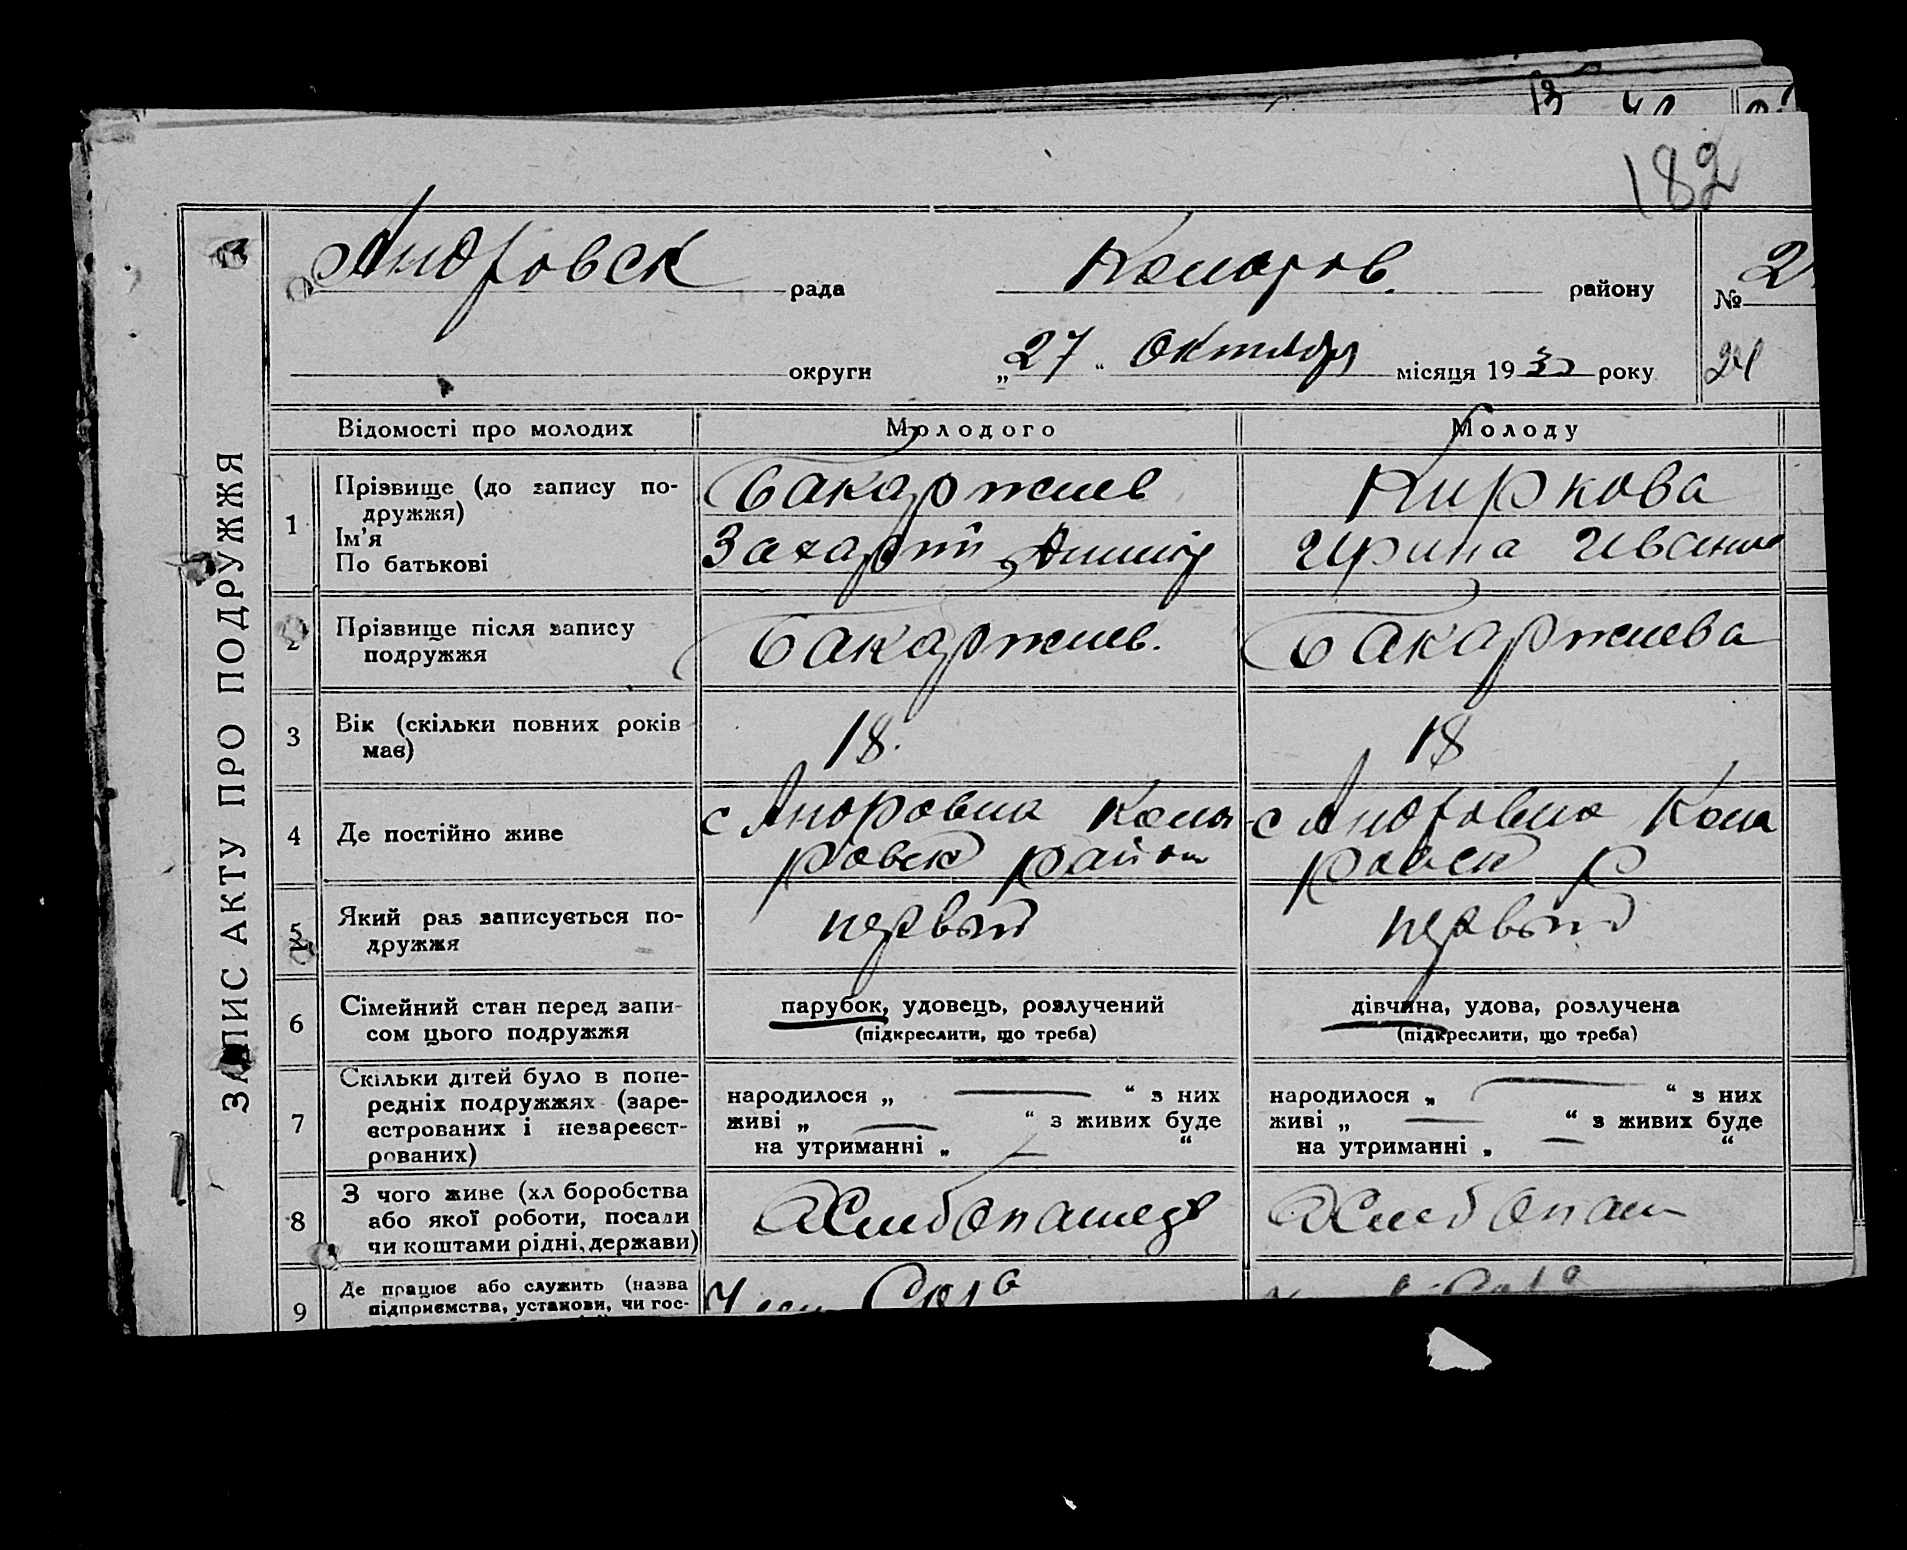 182
Андровск рада Коларов. району №
округи „27“ Октября місяця 1930 року 24
ЗАПИС АКТУ ПРО ПОДРУЖЖЯ
Відомості про молодих Молодого Молоду
1 Прізвище (до запису по-
дружжя)
Ім'я
По батькові
Бакаржиев
Захарий
Киркова
Ирина Иванов
2 Прізвище після запису
подружжя
Бакаржиев.
Бакаржиева
3 Вік (скільки повних років
має)
18.
18
4 Де постійно живе
с Андровка Кола
ровск район
с Андровка Кола
ровск р
5 Який раз записується по-
дружжя
первый
первый
6 Сімейний стан перед запи-
сом цього подружжя
парубок, удовець, розлучений
(підкреслити, що треба)
дівчина, удова, розлучена
(підкреслити, що треба)
7 Скільки дітей було в попе-
редніх подружжях (заре-
єстрованих і незареєст-
рованих)
народилося „ — “ з них
живі „ — “ з живих буде
на утриманні „ — “
народилося „ — “ з них
живі „ — “ з живих буде
на утриманні „ — “
8 З чого живе (хл боробства
або якої роботи, посади
чи коштами рідні, держави)
Хлебопашец
Хлебопаш
9 Де працює або служить (назва
підприємства, установи, чи гос-